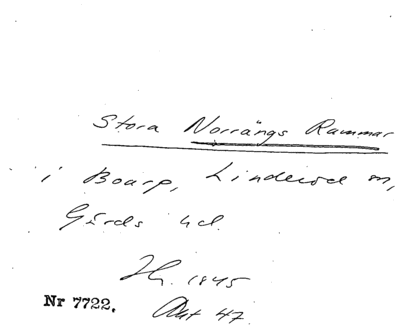 Stora Norrängs Rammar
i Boarp, Linderöd sn,
Gärds hd.
Hg. 1845
Nr 7722. Akt 47